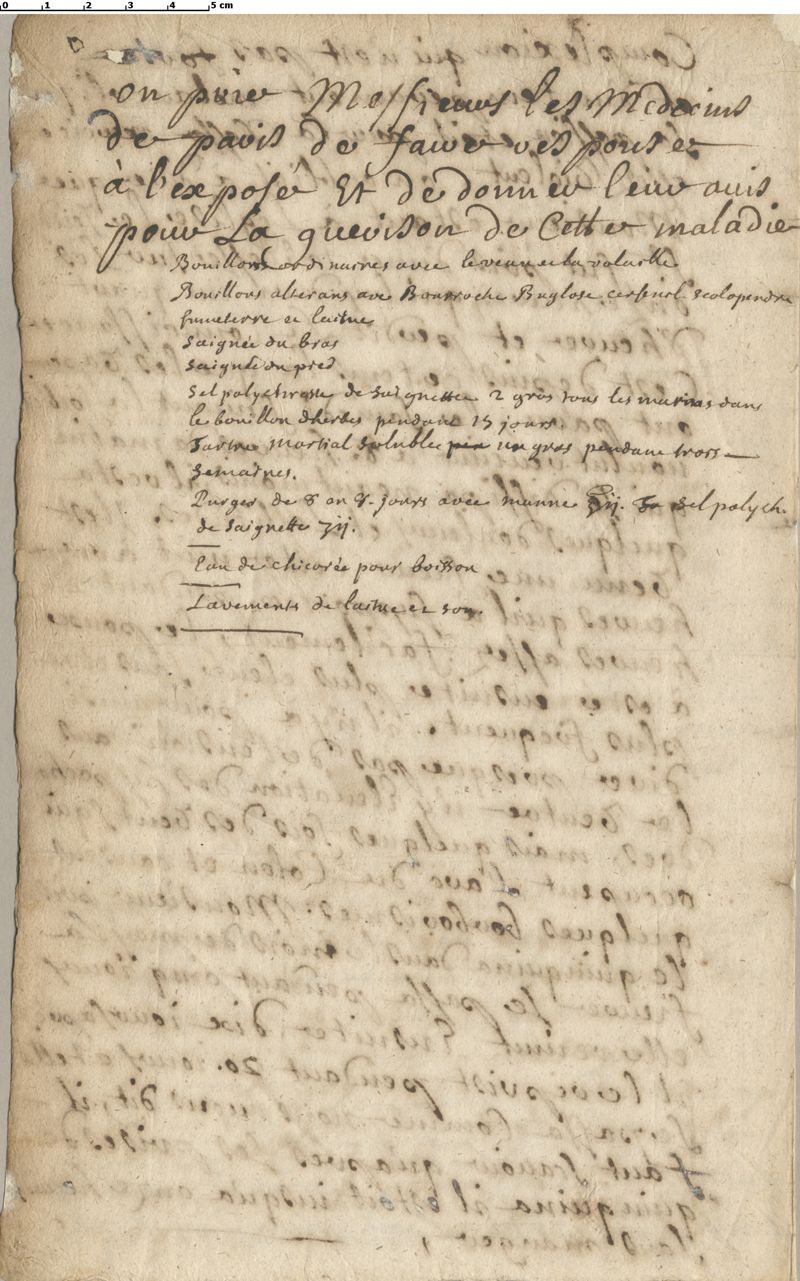 0 1 2 3 4 5 cm
on prie Messieurs les Medecins
de paris de faire responses
à l'exposé Et de donner leur avis
pour La guerison de Cette maladie
Bouillons ordinaires avec le veau et la volaille
Bouillons alterans avec Bourroche Buglose cerfeuil scolopendre
fumeterre et laitue
Saignée du bras
Saignée du pied
Sel polychreste de Saignette 2 gros tous les matins dans
le bouillon dherbes pendant 15 jours.
Tartre martial soluble un gros pendant trois
Semaines.
Purger de 8 en 8 jours avec manne ℥ij. Sel polych.
de Saignette ʒij.
Eau de chicorée pour boisson
Lavements de laitue et son.